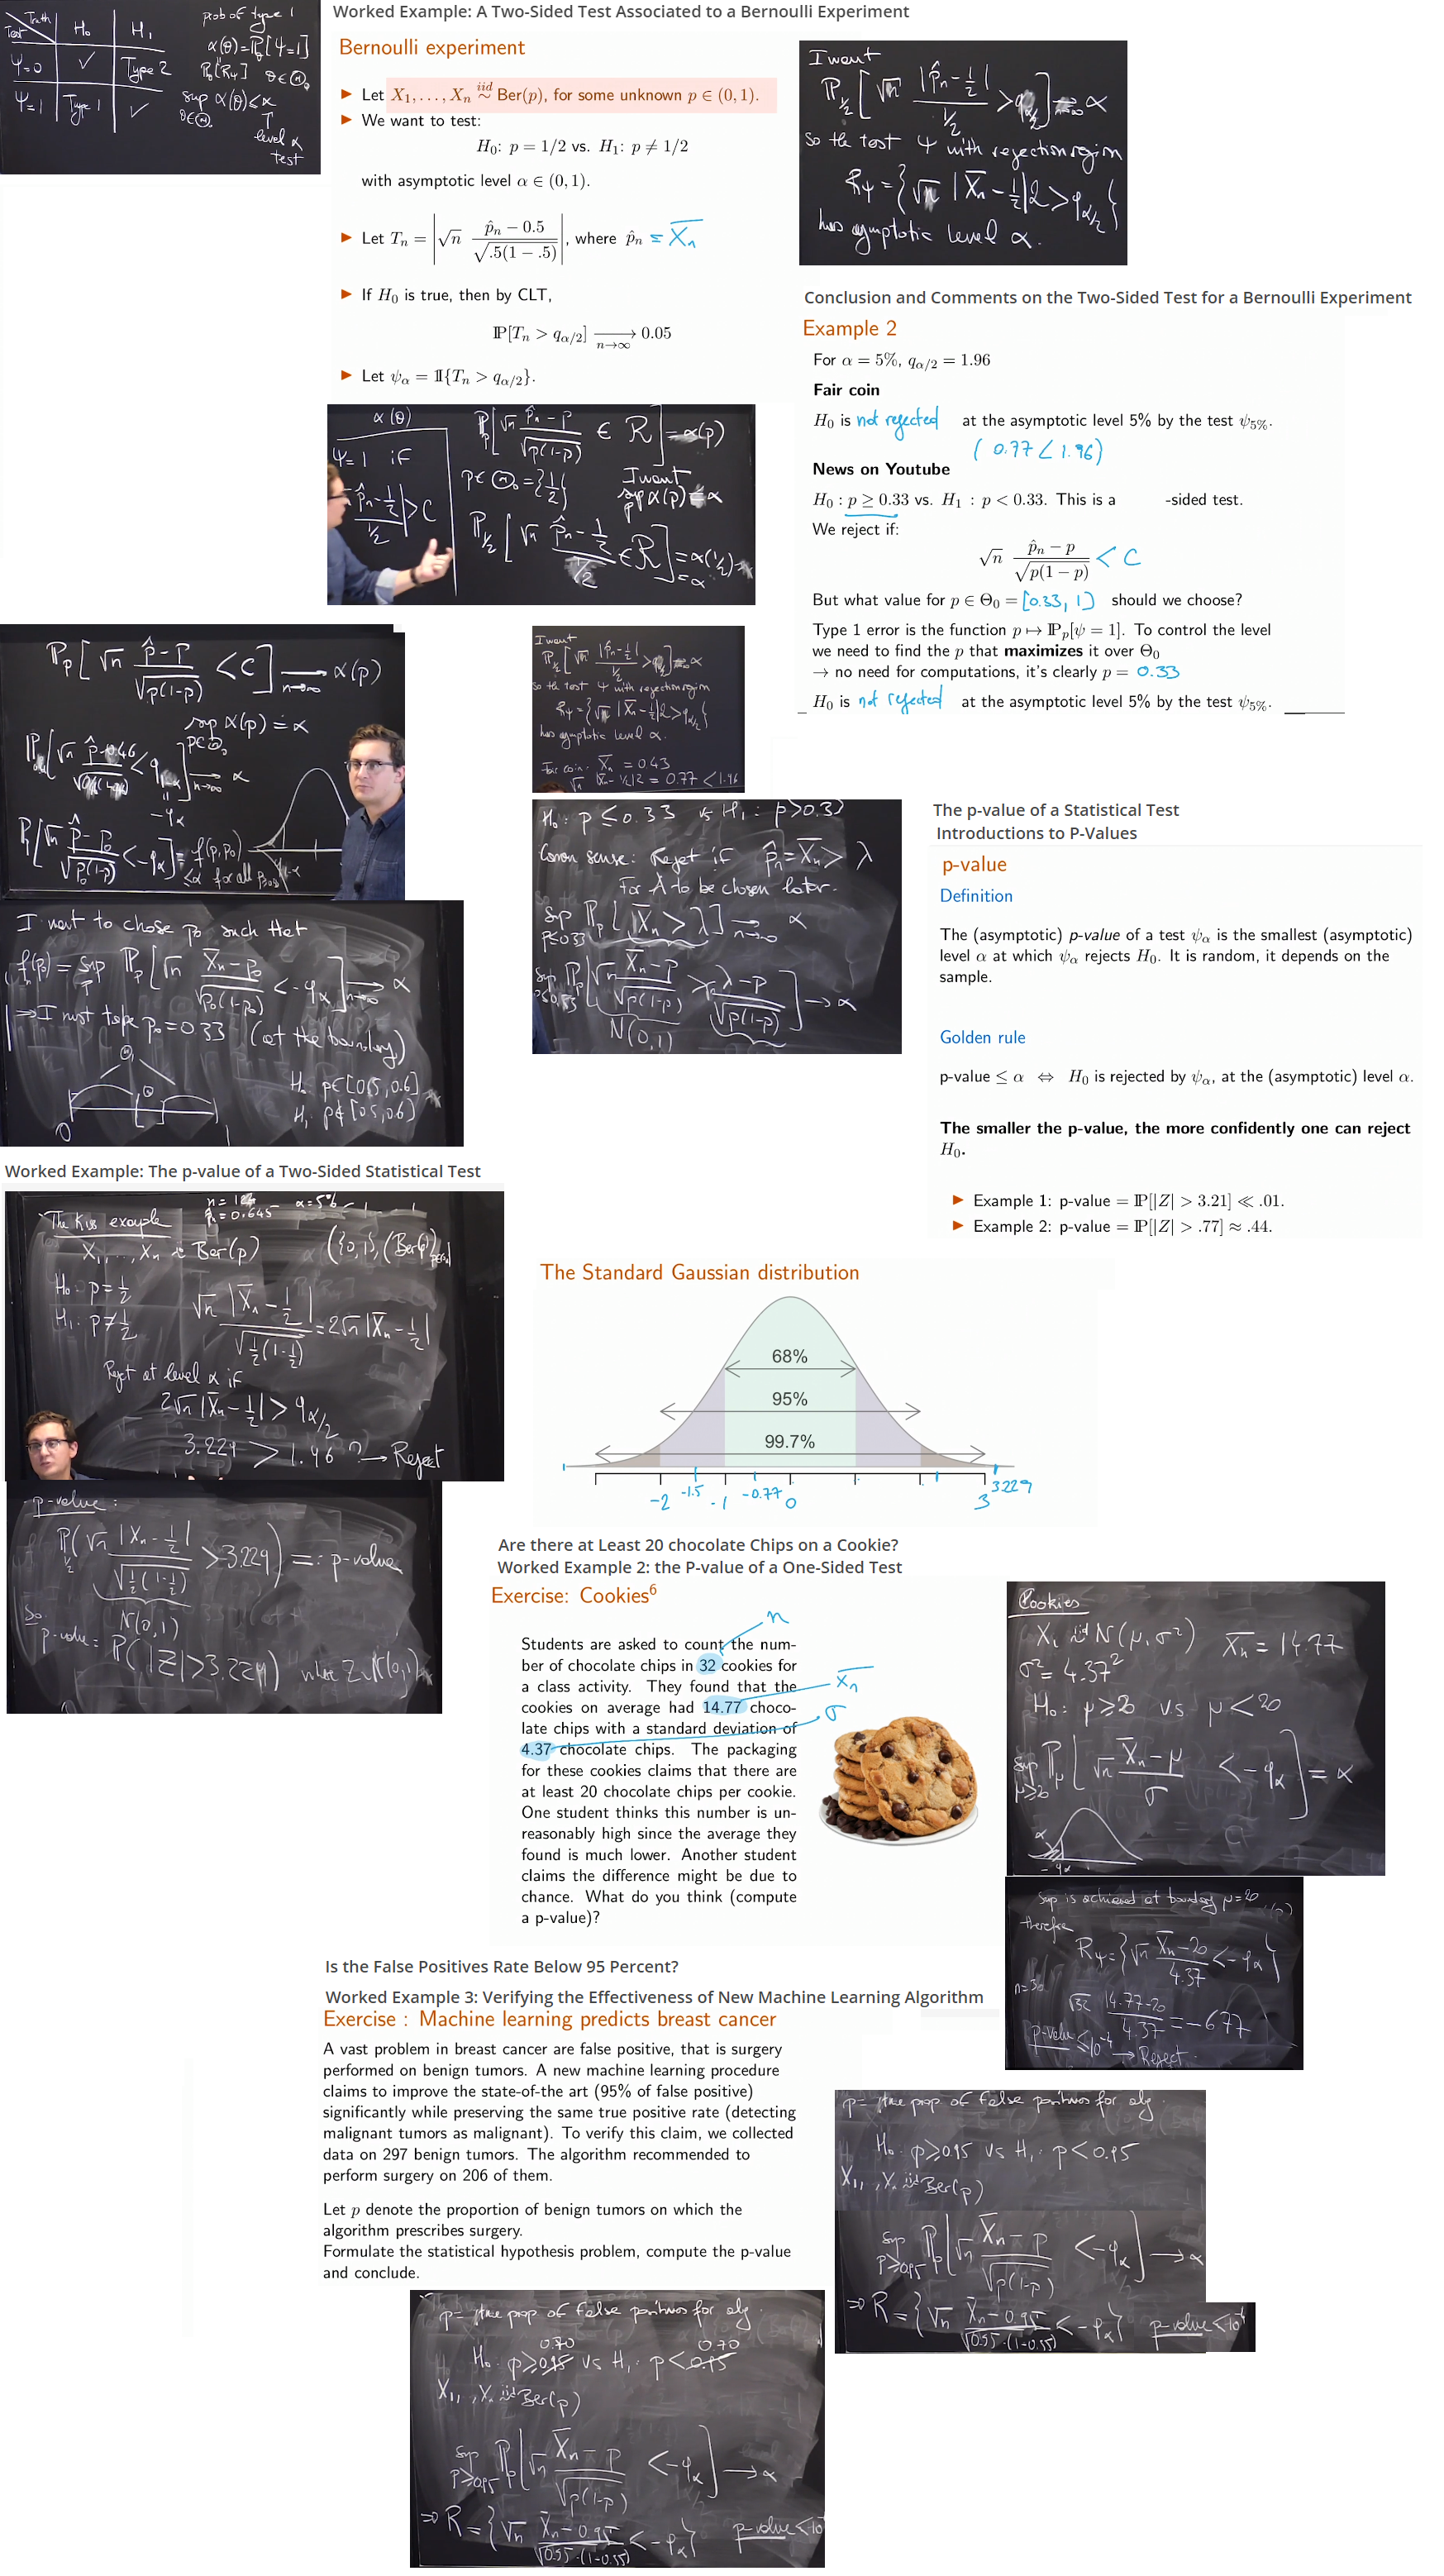 Truth
Test
H₀
H₁
ψ=0
✓
Type 2
ψ=1
Type 1
✓
prob of type 1
α(θ)=P_θ[ψ=1]
P_θ[R_ψ] θ∈Θ₀
sup α(θ)≤α
θ∈Θ₀
level α
test
Worked Example: A Two-Sided Test Associated to a Bernoulli Experiment
Bernoulli experiment
▶ Let X₁, . . . , Xₙ iid ∼ Ber(p), for some unknown p ∈ (0, 1).
▶ We want to test:
H₀: p = 1/2 vs. H₁: p ≠ 1/2
with asymptotic level α ∈ (0, 1).
▶ Let Tₙ = |√n (p̂ₙ − 0.5)/√(.5(1 − .5))|, where p̂ₙ = X̄ₙ
▶ If H₀ is true, then by CLT,
ℙ[Tₙ > q_{α/2}] ⟶ 0.05
n→∞
▶ Let ψ_α = 𝟙{Tₙ > q_{α/2}}.
I want
P_{1/2}[√n |p̂ₙ − 1/2| / (1/2) > q_{α/2}] → α
so the test ψ with rejection region
R_ψ = {√n |X̄ₙ − 1/2| 2 > q_{α/2}}
has asymptotic level α.
Conclusion and Comments on the Two-Sided Test for a Bernoulli Experiment
Example 2
For α = 5%, q_{α/2} = 1.96
Fair coin
H₀ is not rejected at the asymptotic level 5% by the test ψ₅%.
( 0.77 < 1.96)
News on Youtube
H₀ : p ≥ 0.33 vs. H₁ : p < 0.33. This is a -sided test.
We reject if:
√n (p̂ₙ − p)/√(p(1 − p)) < C
But what value for p ∈ Θ₀ = [0.33, 1) should we choose?
Type 1 error is the function p ↦ ℙₚ[ψ = 1]. To control the level
we need to find the p that maximizes it over Θ₀
→ no need for computations, it's clearly p = 0.33
H₀ is not rejected at the asymptotic level 5% by the test ψ₅%.
α(θ)
ψ=1 if
p̂ₙ − 1/2 / (1/2) | > C
Pₚ[√n (p̂ₙ − p)/√(p(1-p)) ∈ R] = α(p)
p∈Θ₀={1/2}
I want
sup α(p) = α
P_{1/2}[√n (p̂ₙ − 1/2)/(1/2) ∈ R] = α(1/2)
= α
Pₚ[√n (p̂ − p)/√(p(1-p)) < C] → α(p)
n→∞
sup α(p) = α
p∈Θ₀
→ α
n→∞
−q_α
P[√n (p̂ − p₀)/√(p₀(1-p₀)) < −q_α] = f(p,p₀)
≤ α for all
I want
so the test ψ with rejection region
R_ψ = {√n |X̄ₙ − 1/2| 2 > q_{α/2}}
has asymptotic level α.
Fair coin. X̄ₙ = 0.43
√n |X̄ₙ − 1/2| 2 = 0.77 < 1.96
I want to chose p₀ such that
f(p₀) = sup Pₚ[√n (X̄ₙ − p₀)/√(p₀(1-p₀)) < −q_α] → α
n→∞
⇒ I must take p₀=0.33 (at the boundary)
H₀ p∈[0.5, 0.6]
H₁ p∉[0.5, 0.6]
0
1
H₀: p ≤ 0.33 vs H₁: p>0.33
Common sense: Reject if p̂ₙ = X̄ₙ > λ
For λ to be chosen later.
sup Pₚ[X̄ₙ > λ] → α
p≤0.33 n→∞
sup Pₚ[√n (X̄ₙ − p)/√(p(1-p)) > √n (λ − p)/√(p(1-p))] → α
p≤0.33
N(0,1)
The p-value of a Statistical Test
Introductions to P-Values
p-value
Definition
The (asymptotic) p-value of a test ψ_α is the smallest (asymptotic)
level α at which ψ_α rejects H₀. It is random, it depends on the
sample.
Golden rule
p-value ≤ α ⇔ H₀ is rejected by ψ_α, at the (asymptotic) level α.
The smaller the p-value, the more confidently one can reject
H₀.
▶ Example 1: p-value = ℙ[|Z| > 3.21] ≪ .01.
▶ Example 2: p-value = ℙ[|Z| > .77] ≈ .44.
Worked Example: The p-value of a Two-Sided Statistical Test
n = 124 α = 5%
p̂ₙ = 0.645
The Kiss example
X₁, ..., Xₙ ~ Ber(p)
H₀: p = 1/2
H₁: p ≠ 1/2
√n |X̄ₙ − 1/2| / √(1/2(1-1/2)) = 2√n |X̄ₙ − 1/2|
Reject at level α if
2√n |X̄ₙ − 1/2| > q_{α/2}
3.229 > 1.96 ? → Reject
p-value:
P_{1/2}(√n |X̄ₙ − 1/2| / √(1/2(1-1/2)) > 3.229) =: p-value
N(0,1)
So
p-value = P(|Z| > 3.229) where Z~N(0,1)
The Standard Gaussian distribution
68%
95%
99.7%
-2 -1.5 -1 -0.77 0 3 3.229
Are there at Least 20 chocolate Chips on a Cookie?
Worked Example 2: the P-value of a One-Sided Test
Exercise: Cookies⁶
n
Students are asked to count the num-
ber of chocolate chips in 32 cookies for
a class activity. They found that the
cookies on average had 14.77 choco-
late chips with a standard deviation of
4.37 chocolate chips. The packaging
for these cookies claims that there are
at least 20 chocolate chips per cookie.
One student thinks this number is un-
reasonably high since the average they
found is much lower. Another student
claims the difference might be due to
chance. What do you think (compute
a p-value)?
X̄ₙ
σ
Cookies
Xᵢ iid N(μ, σ²) X̄ₙ = 14.77
σ² = 4.37²
H₀: μ ≥ 20 vs μ < 20
sup P_μ[√n (X̄ₙ − μ)/σ < −q_α] = α
μ≥20
α
−q_α
Sup is achieved at boundary μ=20
therefore
R_ψ = {√n (X̄ₙ − 20)/4.37 < −q_α}
√32 (14.77−20)/4.37 = −6.77
p-value ≤ 10⁻⁴ → Reject.
Is the False Positives Rate Below 95 Percent?
Worked Example 3: Verifying the Effectiveness of New Machine Learning Algorithm
Exercise : Machine learning predicts breast cancer
A vast problem in breast cancer are false positive, that is surgery
performed on benign tumors. A new machine learning procedure
claims to improve the state-of-the art (95% of false positive)
significantly while preserving the same true positive rate (detecting
malignant tumors as malignant). To verify this claim, we collected
data on 297 benign tumors. The algorithm recommended to
perform surgery on 206 of them.
Let p denote the proportion of benign tumors on which the
algorithm prescribes surgery.
Formulate the statistical hypothesis problem, compute the p-value
and conclude.
p = true prop of False positives for alg.
H₀: p≥0.95 vs H₁: p<0.95
X₁, , Xₙ iid Ber(p)
sup Pₚ[√n (X̄ₙ − p)/√(p(1-p)) < −q_α] → α
p≥0.95
⇒ R = {√n (X̄ₙ − 0.95)/√(0.95·(1-0.95)) < −q_α} p-value < 10⁻⁴
p = true prop of False positives for alg.
0.70 0.70
H₀: p≥0.95 vs H₁: p<0.95
X₁, , Xₙ iid Ber(p)
sup Pₚ[√n (X̄ₙ − p)/√(p(1-p)) < −q_α] → α
p≥0.95
⇒ R = {√n (X̄ₙ − 0.95)/√(0.95·(1-0.95)) < −q_α} p-value < 10